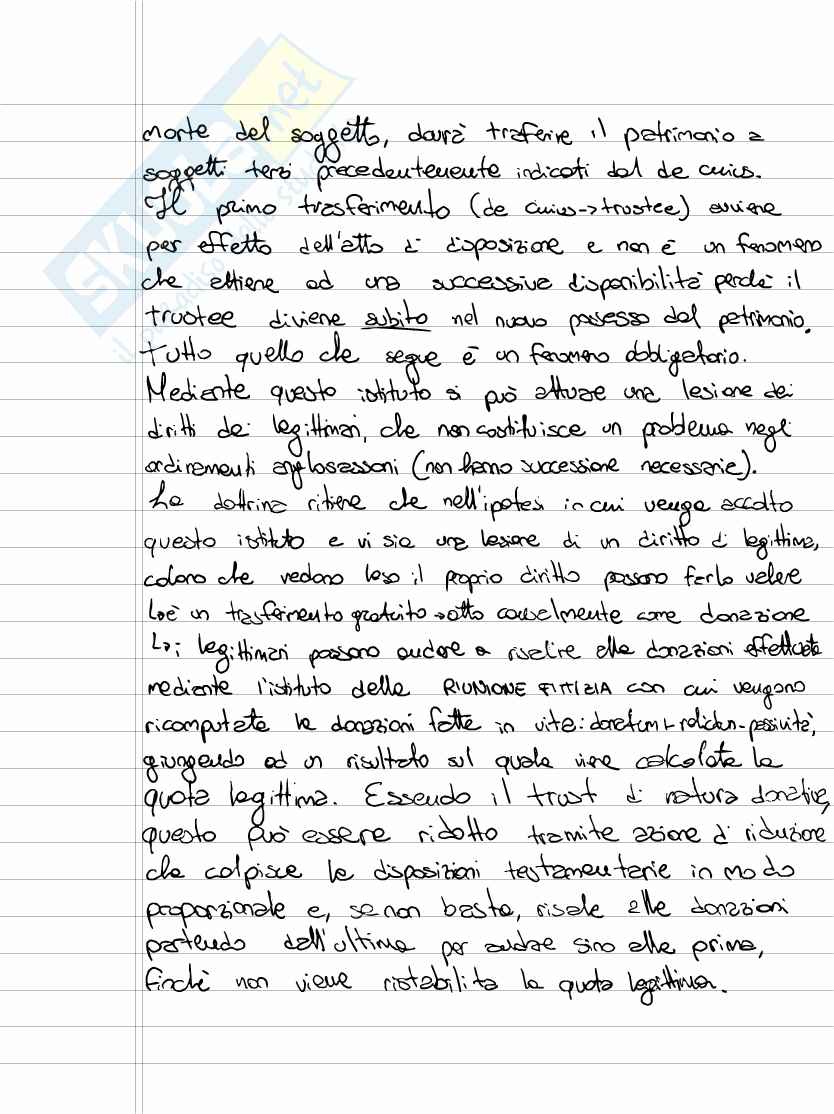 SKUOLA.net
il paradiso dello studente
morte del soggetto, dovrà traferire il patrimonio a
soggetti terzi precedentemente indicati dal de cuius.
Il primo trasferimento (de cuius->trustee) avviene
per effetto dell'atto di disposizione e non è un fenomeno
che attiene ad una successiva disponibilità perché il
trustee diviene subito nel nuovo possesso del patrimonio.
Tutto quello che segue è un fenomeno obbligatorio.
Mediante questo istituto si può attuare una lesione dei
diritti dei legittimari, che non costituisce un problema negli
ordinamenti anglosassoni (non hanno successione necessaria).
La dottrina ritiene che nell'ipotesi in cui venga accolto
questo istituto e vi sia una lesione di un diritto di legittima,
coloro che vedono leso il proprio diritto possono farlo valere
↳è un trasferimento gratuito→atto causalmente come donazione
↳i legittimari possono andare a risalire alle donazioni effettuate
mediante l'istituto della RIUNIONE FITTIZIA con cui vengono
ricomputate le donazioni fatte in vita: donatum+relictum-passività,
giungendo ad un risultato sul quale viene calcolata la
quota legittima. Essendo il trust di natura donativa,
questo può essere ridotto tramite azione di riduzione
che colpisce le disposizioni testamentarie in modo
proporzionale e, se non basta, risale alle donazioni
partendo dall'ultima per andare sino alla prima,
finché non viene ristabilita la quota legittima.